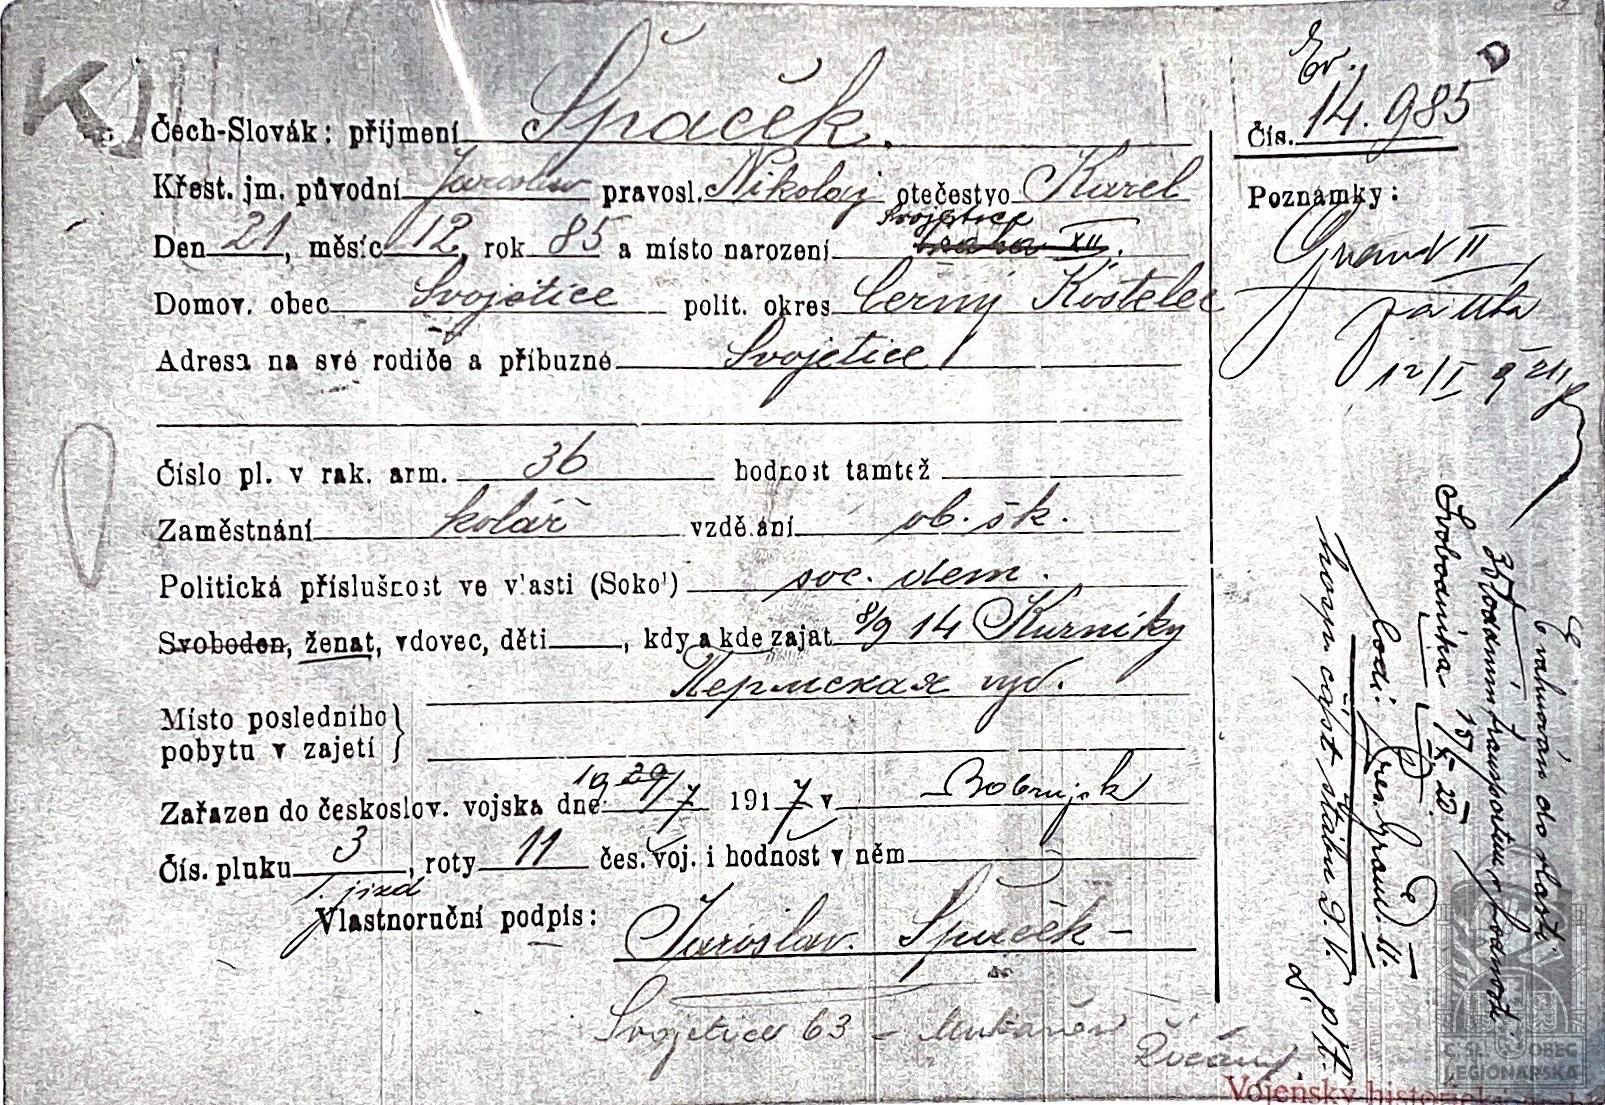 KJ
Čech-Slovák: příjmení Špaček.
Křest. jm. původní Jaroslav pravosl. Nikolaj otečestvo Karel
Svojetice
Den 21, měsíc 12, rok 85 a místo narození Praha XII.
Domov. obec Svojetice polit. okres Černý Kostelec
Adresa na své rodiče a příbuzné Svojetice
Číslo pl. v rak. arm. 36 hodnost tamtéž
Zaměstnání kolář vzdělání ob. šk.
Politická příslušnost ve vlasti (Sokol) soc. dem.
Svoboden, ženat, vdovec, děti , kdy a kde zajat 8/9 14 Kurniky
Пермская
Místo posledního
pobytu v zajetí
Zařazen do českoslov. vojska dne 19 29/7 1917 v Bobrujsk
Čís. pluku 3, roty 11 čes. voj. i hodnost v něm
1. jízd
Vlastnoruční podpis: Jaroslav Špaček
Svojetice 63 - Mukařov
Čís. 14.985
Poznámky:
II
12/I
Evakuován do vlasti
35 transportem v hodnosti
Svobodníka
hosp. část štábu
Č. SL. OBEC
LEGIONÁŘSKÁ
Vojenský